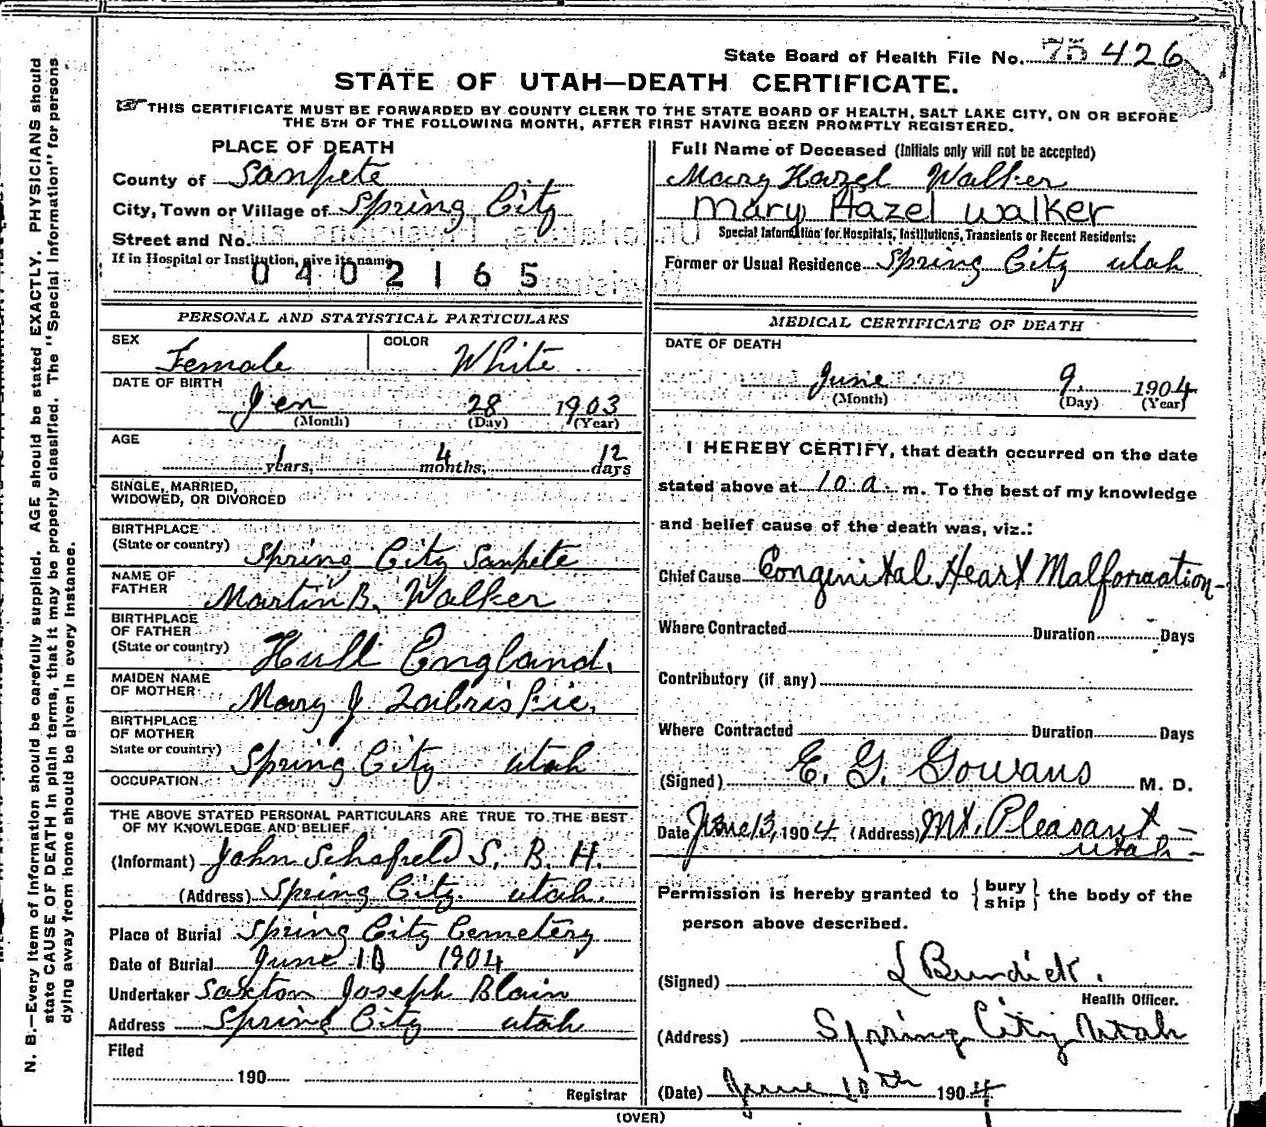 State Board of Health File No. 75 426
STATE OF UTAH—DEATH CERTIFICATE.
THIS CERTIFICATE MUST BE FORWARDED BY COUNTY CLERK TO THE STATE BOARD OF HEALTH, SALT LAKE CITY, ON OR BEFORE
THE 5TH OF THE FOLLOWING MONTH, AFTER FIRST HAVING BEEN PROMPTLY REGISTERED.
PLACE OF DEATH
County of Sanpete
City, Town or Village of Spring City
Street and No.
If in Hospital or Institution, give its name
0402165
PERSONAL AND STATISTICAL PARTICULARS
SEX Female COLOR White
DATE OF BIRTH
Jen 28 1903
(Month) (Day) (Year)
AGE
1 years, 4 months, 12 days
SINGLE, MARRIED,
WIDOWED, OR DIVORCED
BIRTHPLACE
(State or country) Spring City Sanpete
NAME OF
FATHER Martin B. Walker
BIRTHPLACE
OF FATHER
(State or country) Hull England.
MAIDEN NAME
OF MOTHER Mary J Zabriskie,
BIRTHPLACE
OF MOTHER
State or country) Spring City Utah
OCCUPATION
THE ABOVE STATED PERSONAL PARTICULARS ARE TRUE TO THE BEST
OF MY KNOWLEDGE AND BELIEF
(Informant) John Schofield S. B. H.
(Address) Spring City. Utah.
Place of Burial Spring City Cemetery
Date of Burial June 10 1904
Undertaker Saxton Joseph Blain
Address Spring City Utah
Filed
190
Registrar
Full Name of Deceased (Initials only will not be accepted)
Mary Hazel Walker
Mary Hazel Walker
Special Information for Hospitals, Institutions, Transients or Recent Residents:
Former or Usual Residence Spring City Utah
MEDICAL CERTIFICATE OF DEATH
DATE OF DEATH
June 9. 1904
(Month) (Day) (Year)
I HEREBY CERTIFY, that death occurred on the date
stated above at 10 a. m. To the best of my knowledge
and belief cause of the death was, viz.:
Chief Cause Congenital Heart Malformation-
Where Contracted Duration Days
Contributory (if any)
Where Contracted Duration Days
(Signed) E. G. Gowans M. D.
Date June 13, 1904 (Address) Mt. Pleasant -
Utah -
Permission is hereby granted to {bury ship} the body of the
person above described.
(Signed) L Burdick.
Health Officer.
(Address) Spring City Utah
(Date) June 10th 1904
(OVER)
N. B.—Every item of information should be carefully supplied. AGE should be stated EXACTLY. PHYSICIANS should
state CAUSE OF DEATH in plain terms, that it may be properly classified. The "Special Information" for persons
dying away from home should be given in every instance.